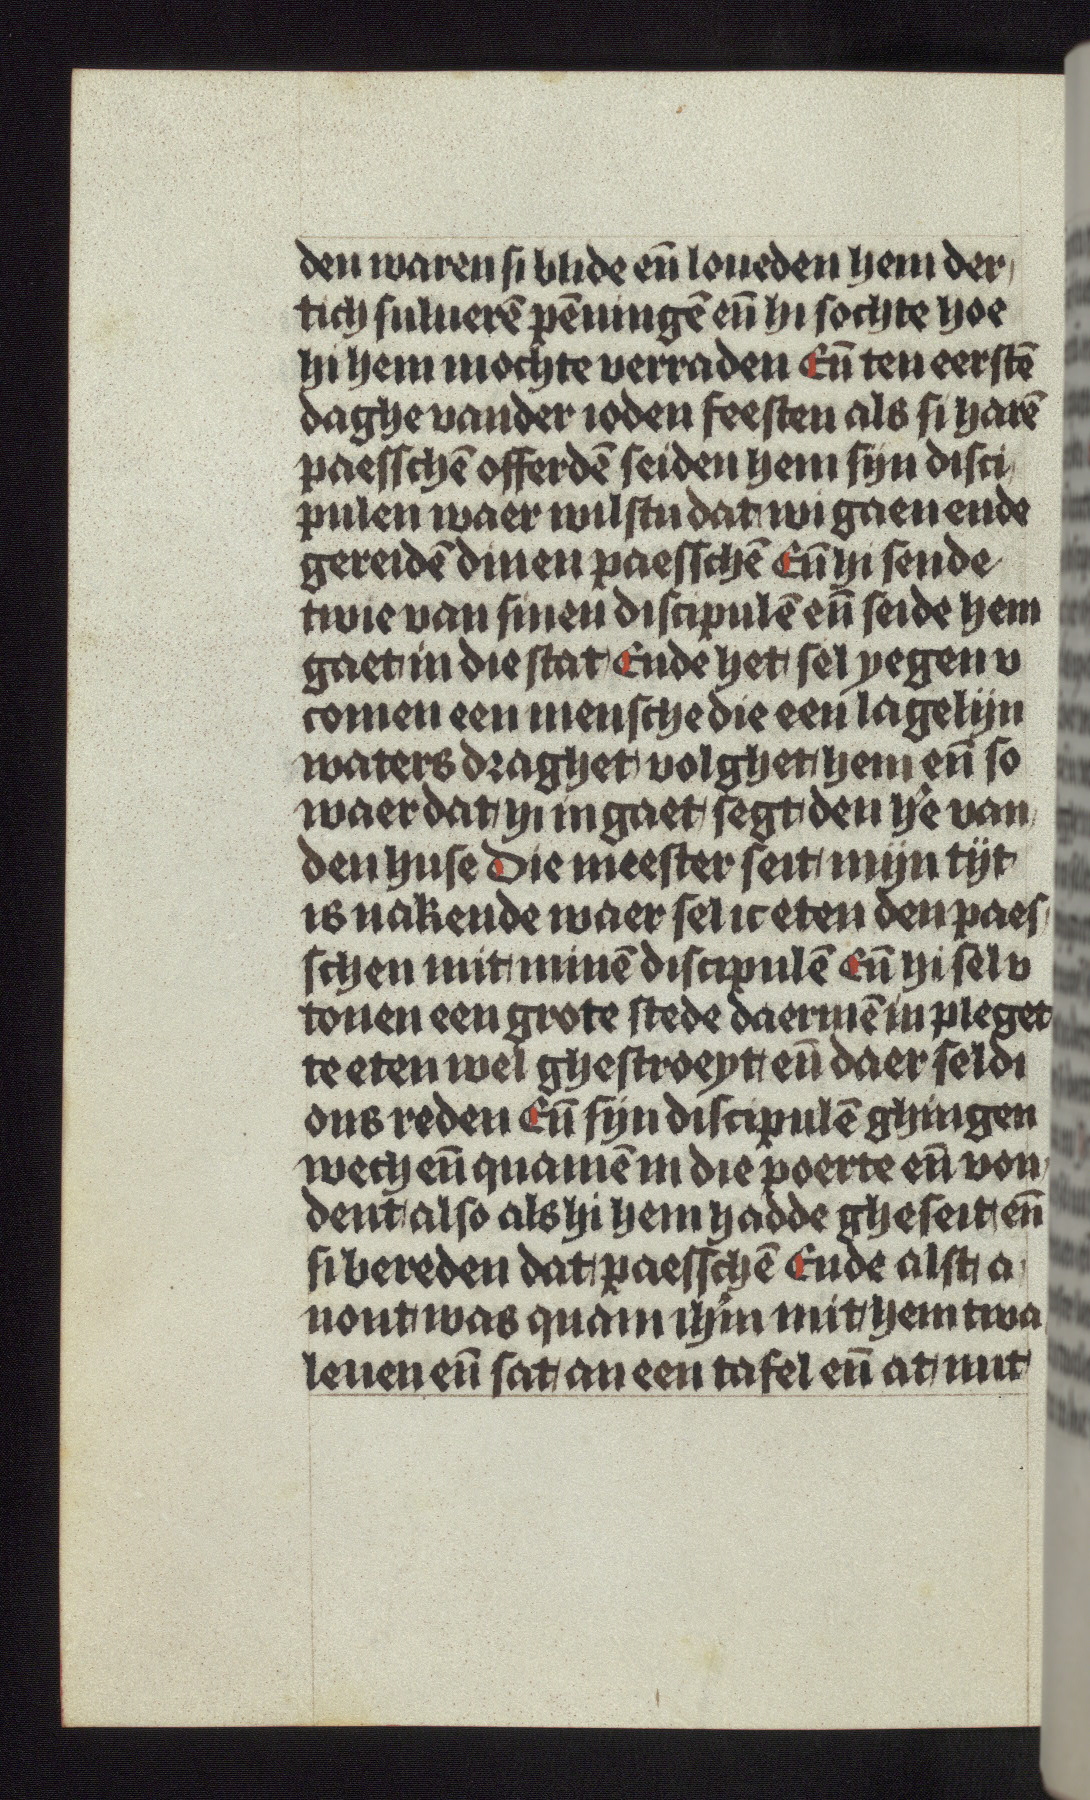 den waren si blide eñ loueden hem der
tich suluerē pēningē eñ hi sochte hoe
hi hem mochte verraden Eñ ten eerstē
daghe vander ioden feesten als si harē
paesschē offerdē seiden hem sijn disci
pulen waer wilstu dat wi gaen ende
gereidē dinen paesschē Eñ hi sende
twie van sinen discipulē eñ seide hem
gaet in die stat Ende het sel yegen v
comen een mensche die een lagelijn
waters draghet volghet hem eñ so
waer dat hi in gaet segt den h'e van
den huse Die meester seit mijn tijt
is nakende waer sel ic eten den paes
schen mit minē discipulē Eñ hi sel v
tonen een grote stede daermē in pleget
te eten wel ghestroeyt eñ daer seldi
ons reden Eñ sijn discipulē ghingen
wech eñ quamē in die poerte eñ von
dent also als hi hem hadde gheseit eñ
si bereden dat paesschē Ende alst a
uont was quam ih'm mit hem twa
leuen eñ sat an een tafel eñ at mit